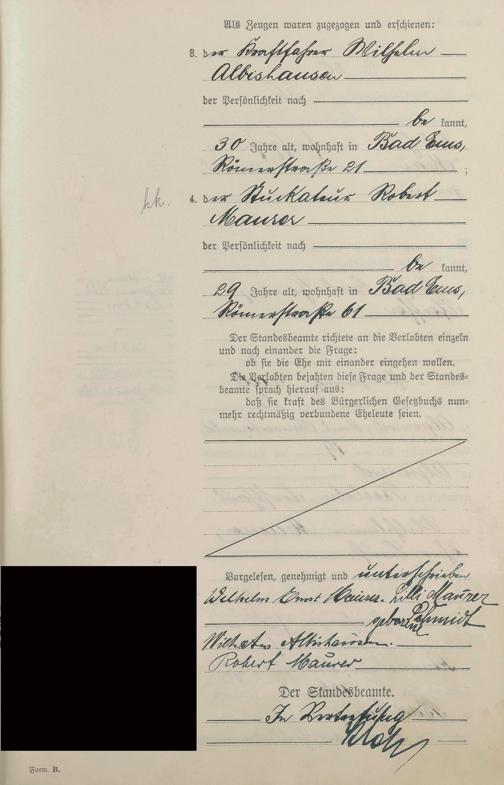 Als Zeugen waren zugezogen und erschienen:
3. der Kraftfahrer Wilhelm
Albishausen
der Persönlichkeit nach
be kannt,
30 Jahre alt, wohnhaft in Bad Ems,
Römerstraße 21 ;
4. der Stuckateur Robert
Maurer
der Persönlichkeit nach
be kannt,
29 Jahre alt, wohnhaft in Bad Ems,
Römerstraße 61
Der Standesbeamte richtete an die Verlobten einzeln
und nach einander die Frage:
ob sie die Ehe mit einander eingehen wollen.
Die Verlobten bejahten diese Frage und der Standes-
beamte sprach hierauf aus:
daß sie kraft des Bürgerlichen Gesetzbuchs nun-
mehr rechtmäßig verbundene Eheleute seien.
Vorgelesen, genehmigt und unterschrieben
Wilhelm Ernst Maurer. Lilli Maurer
geborene Schmidt
Wilhelm Albishausen.
Robert Maurer
Der Standesbeamte.
In Vertretung
Form. B.